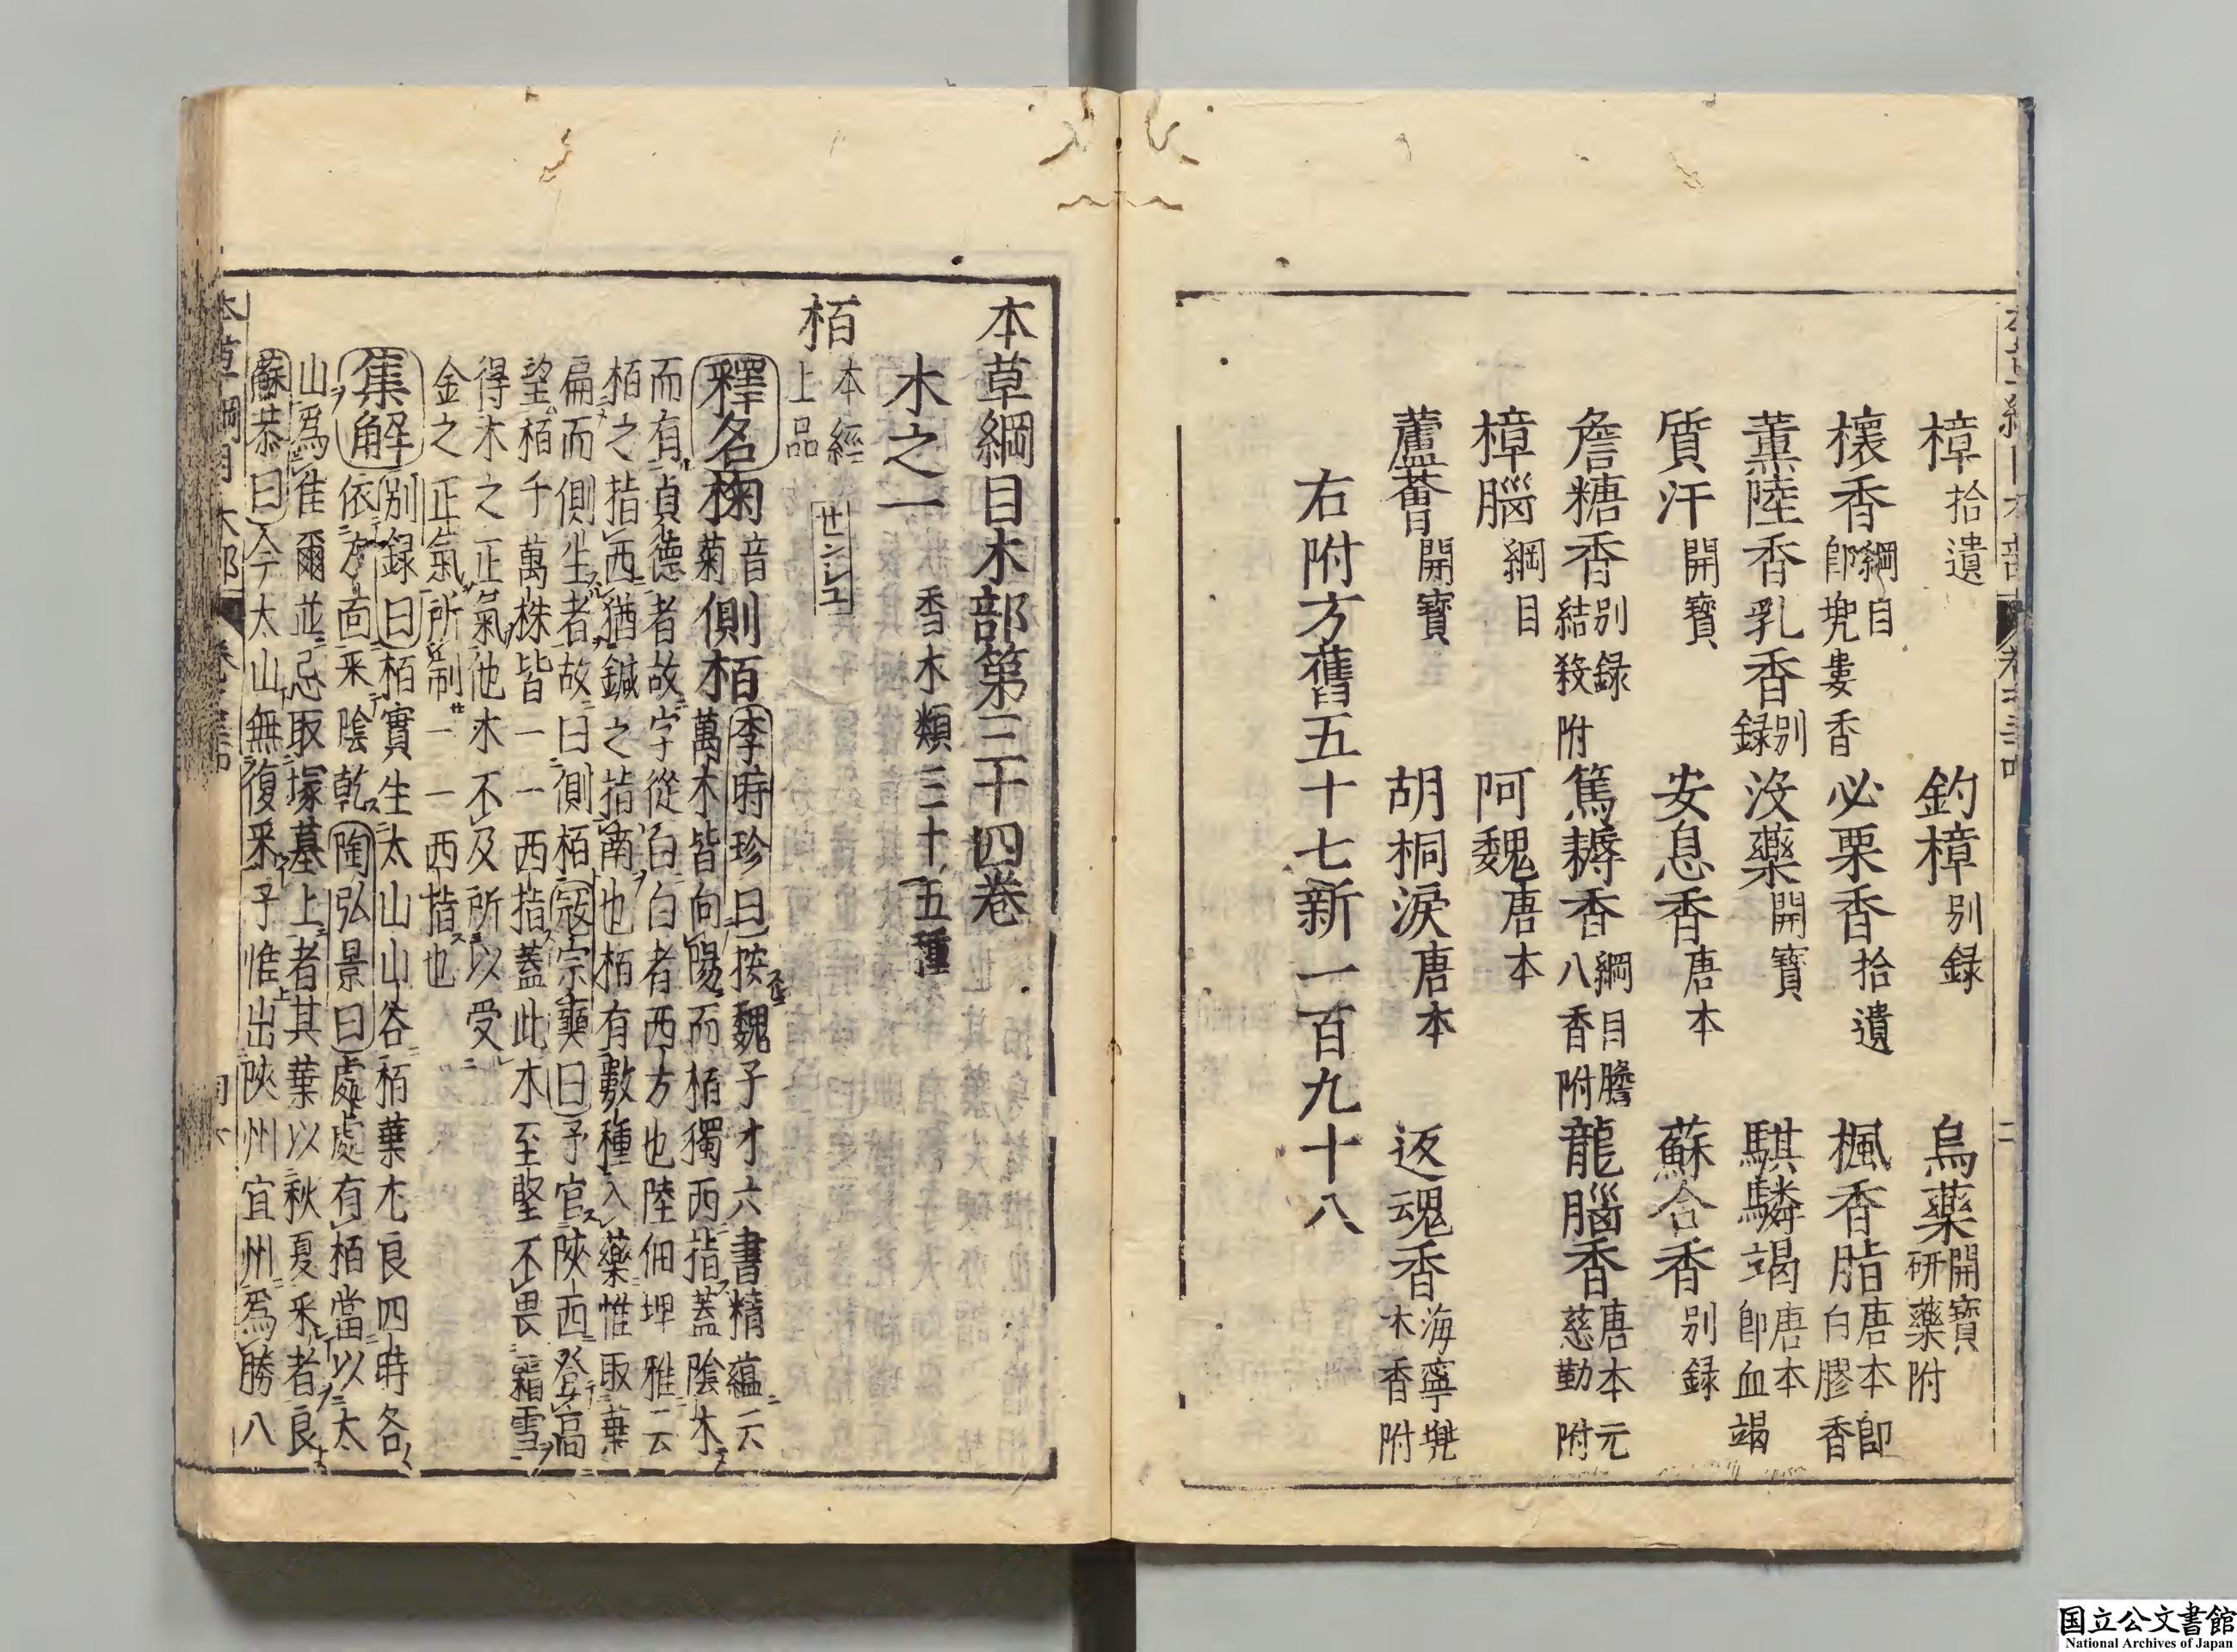 樟拾遺 釣樟別録 烏藥開寶研藥附
櫰香綱目卽兜婁香 必栗香拾遺 楓香脂唐本卽白膠香
薫陸香乳香別録 没藥開寶 騏驎竭唐本卽血竭
質汗開寶 安息香唐本 蘇合香別録
詹糖香別録結殺附 篤耨香綱目膽八香附 龍腦香唐本元慈勒附
樟腦綱目 阿魏唐本
蘆薈開寶 胡桐淚唐本 返魂香海寧兠木香附
右附方舊五十七新一百九十八
本草綱目木部第三十四卷
木之一 香木類三十五種
栢本經上品 廿シンエ
釋名椈音菊側栢李時珍曰按魏子才六書精蘊云萬木皆向陽而栢獨西指蓋陰木
而有貞德者故字從白白者西方也陸佃埤雅云
栢之指西猶鍼之指南也栢有數種入藥惟取葉
扁而側生者故曰側栢寇宗奭曰予官陝西登高
望栢千萬株皆一一西指蓋此木至堅不畏霜雪
得木之正氣他木不及所以受
金之正氣所制一一西指也
集解別録曰栢實生太山山谷栢葉尤良四時各
依方面采陰乾陶弘景曰處處有栢當以太
山爲佳爾並忌取塚墓上者其葉以秋夏采者良
蘇恭曰今太山無復采子惟出陝州宜州爲勝八
本草綱目 木部
国立公文書館
National Archives of Japan